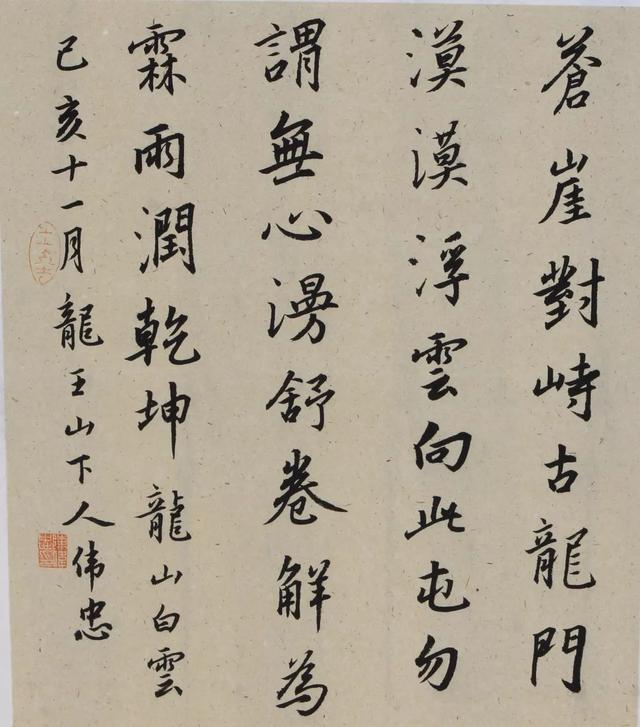 蒼崖對峙古龍門
漠漠浮雲向此屯勿
謂無心漫舒卷解為
霖雨潤乾坤 龍山白雲
己亥十一月 龍王山下人伟忠